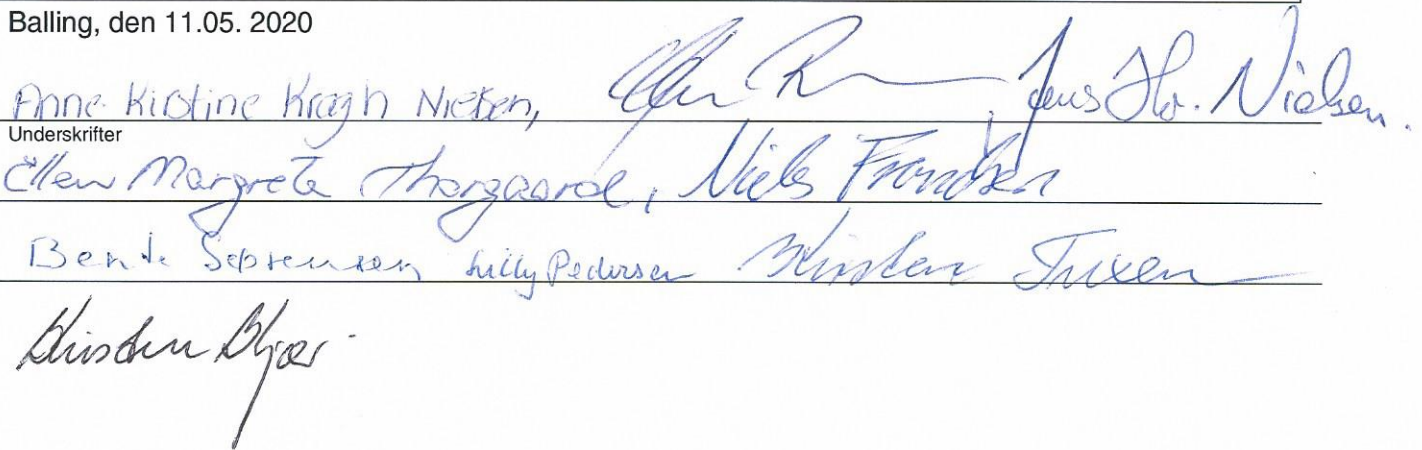 Balling, den 11.05. 2020
Anne Kirstine Kragh Nielsen, Jens Chr. Nielsen.
Underskrifter
Ellen Margrete Thorgaard, Niels Frandsen
Bente Sørensen Lilly Pedersen Kirsten Tuxen
Kirsten